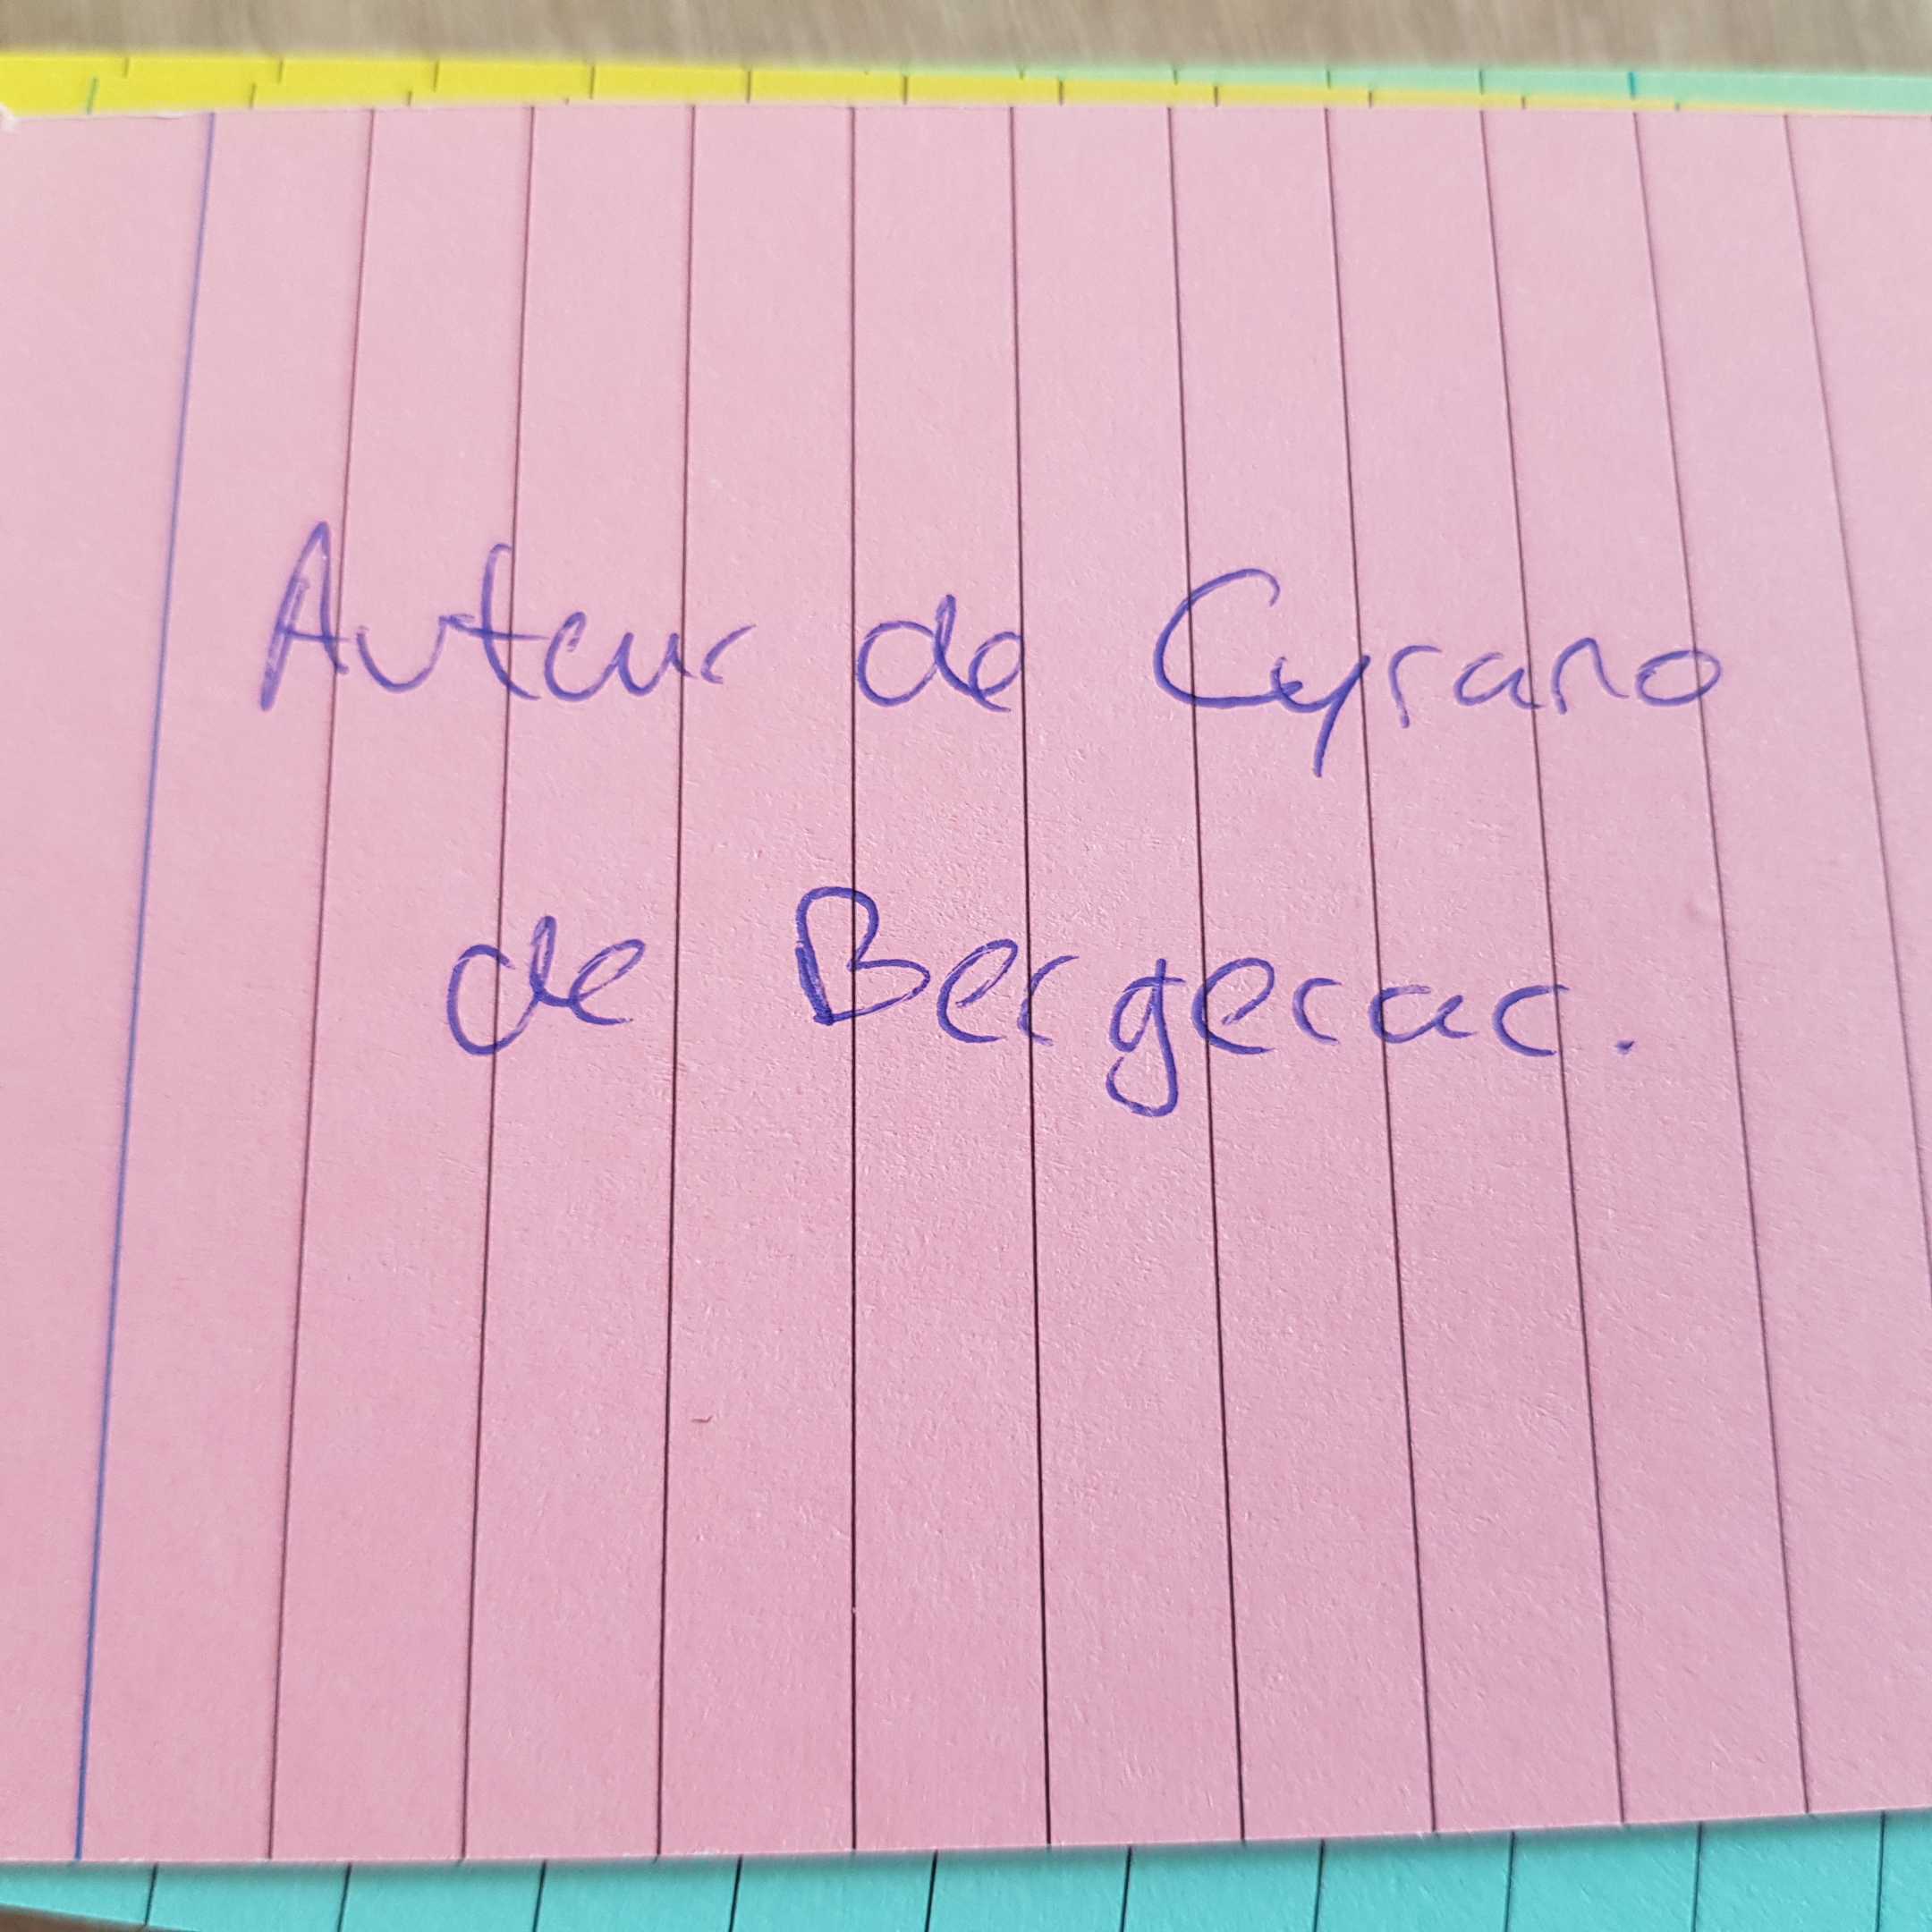 Auteur de Cyrano
de Bergerac.